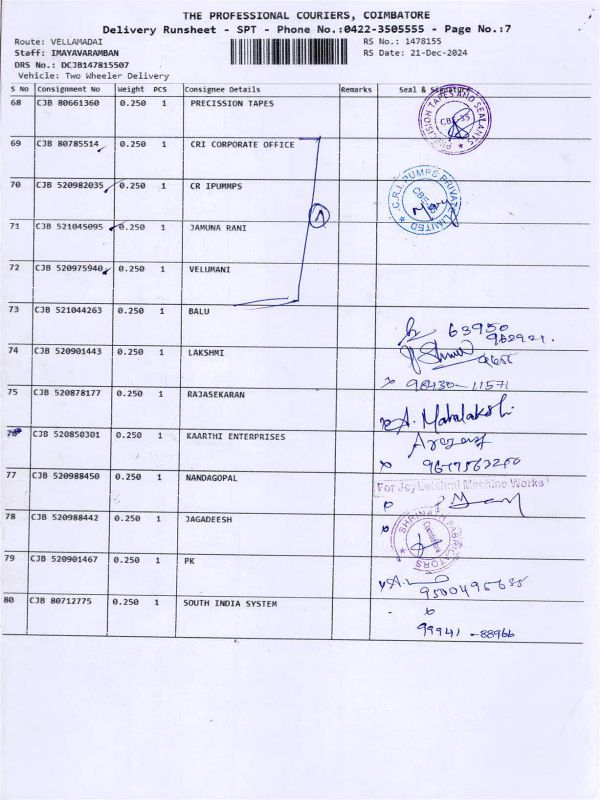 THE PROFESSIONAL COURIERS, COIMBATORE
Delivery Runsheet - SPT - Phone No.:0422-3505555 - Page No.:7
Route: VELLAMADAI RS No.: 1478155
Staff: IMAYAVARAMBAN RS Date: 21-Dec-2024
DRS No.: DCJB147815507
Vehicle: Two Wheeler Delivery
S No Consignment No Weight PCS Consignee Details Remarks Seal & Signature
68 CJB 80661360 0.250 1 PRECISSION TAPES
PRECISION TAPES AND SEALANTS
CBE-35
69 CJB 80785514 0.250 1 CRI CORPORATE OFFICE
70 CJB 520982035 0.250 1 CR IPUMMPS
C.R.I. PUMPS PRIVATE LIMITED
CBE
71 CJB 521045095 0.250 1 JAMUNA RANI
72 CJB 520975940 0.250 1 VELUMANI
73 CJB 521044263 0.250 1 BALU
63950
74 CJB 520901443 0.250 1 LAKSHMI
98430-11571
75 CJB 520878177 0.250 1 RAJASEKARAN
A. Mahalakshi
76 CJB 520850301 0.250 1 KAARTHI ENTERPRISES
77 CJB 520988450 0.250 1 NANDAGOPAL
For JoyLakshmi Machine Works
78 CJB 520988442 0.250 1 JAGADEESH
SHRINATH FABRICATORS
Coimbatore
79 CJB 520901467 0.250 1 PK
80 CJB 80712775 0.250 1 SOUTH INDIA SYSTEM
99941-88966